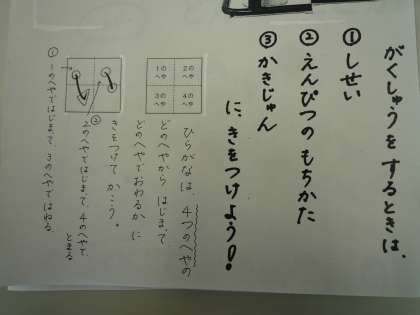 がくしゅうを するときは、
① しせい
② えんぴつの もちかた
③ かきじゅん
に、きをつけよう!
ひらがなは、4つのへやの
どのへやから はじまって
どのへやで おわるか に
きをつけて かこう。
1のへや
2のへや
3のへや
4のへや
②
2のへやではじまって、4のへやで
とまる
①
1のへやではじまって、3のへやではねる